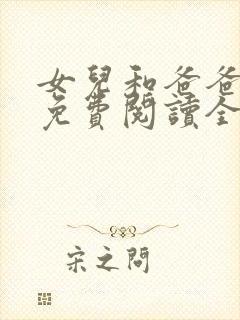 女兒和爸爸
免費閱讀全
宋之問